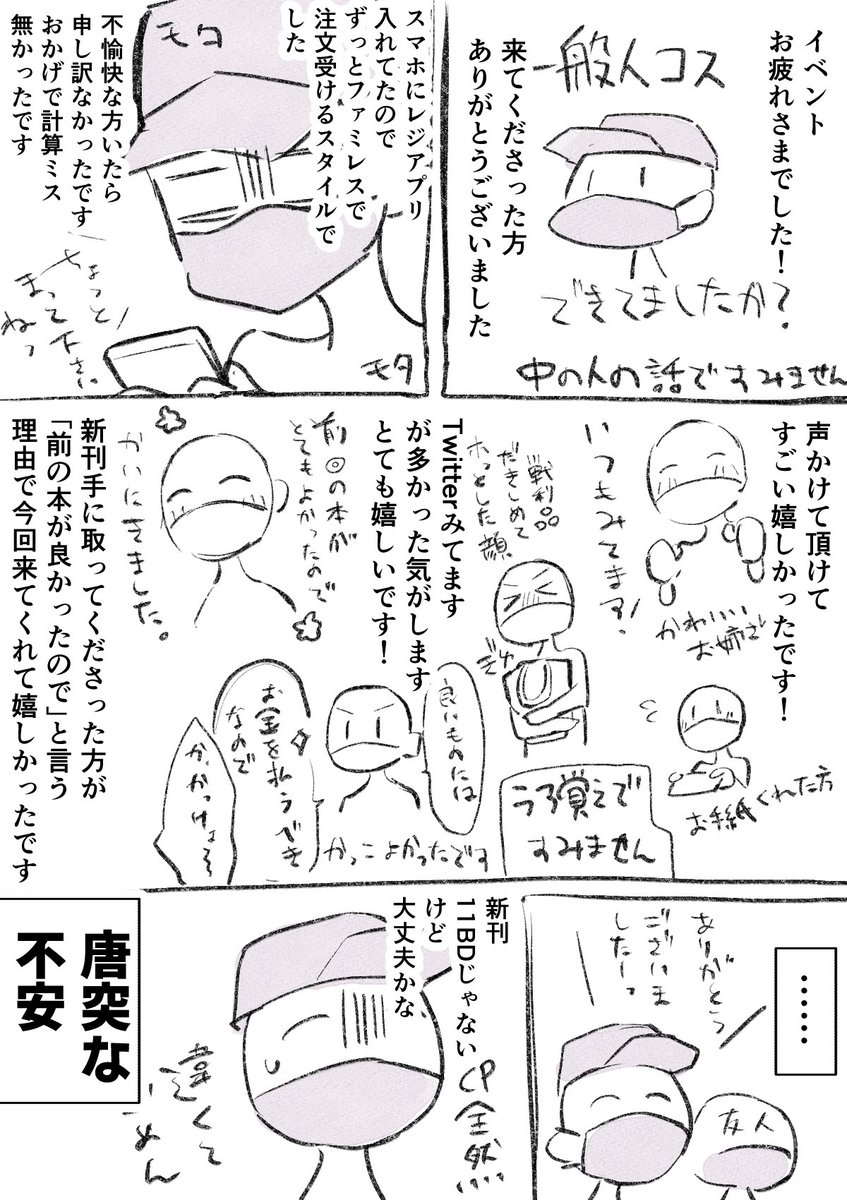 イベント
お疲れさまでした！
一般人コス
来てくださった方
ありがとうございました
できてましたか？
中の人の話ですみません
スマホにレジアプリ
入れてたので
ずっとファミレスで
注文受けるスタイルで
した
モタ
不愉快な方いたら
申し訳なかったです
おかげで計算ミス
無かったです
ちょっと
まって下さい
ねっ
モタ
声かけて頂けて
すごい嬉しかったです！
かわいい
お姉さま
いつもみてます！
お手紙くれた方
戦利品
だきしめて
ホっとした顔
ぎゅ
うろ覚えで
すみません
Twitterみてます
が多かった気がします
とても嬉しいです！
前回の本が
とてもよかったので
かいにきました。
良いものには
お金を払うべき
なので
かっこよかったです
新刊手に取ってくださった方が
「前の本が良かったので」と言う
理由で今回来てくれて嬉しかったです
……
ありがとう
ございま
したーっ
友人
新刊
11BDじゃない
けど
大丈夫かな
CP全然
違くて
ごめん
唐突な
不安